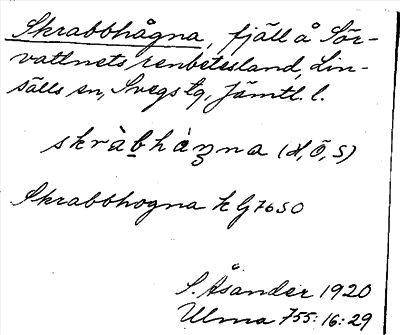 Skrabbhågna, fjäll å Sör-
vattnets renbetesland, Lin-
sälls sn, Svegs tg, Jämtl. l.
skràbhàŋna (d, ö, s)
Skrabbhogna k G 7650
S. Åsander 1920
Ulma 755:16:29